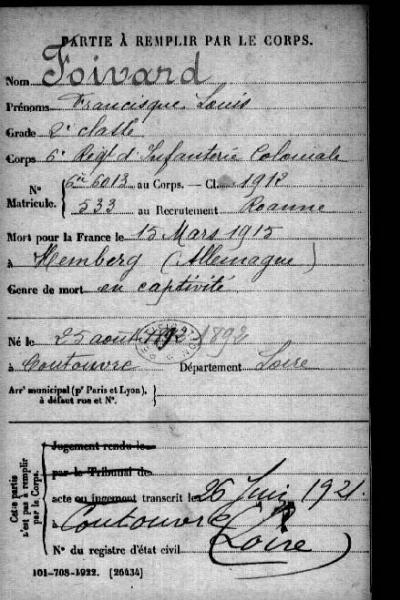 PARTIE À REMPLIR PAR LE CORPS.
Nom Foivard
Prénoms Francisque Louis
Grade 2e classe
Corps 6e Régt d'Infanterie Coloniale
No Matricule. 6013 au Corps. — Cl. 1912
533 au Recrutement Roanne
Mort pour la France le 15 Mars 1915
à Hemberg (Allemagne)
Genre de mort en captivité
Né le 25 août 1892
à Coutouvre Département Loire
Arrt municipal (pr Paris et Lyon), à défaut rue et No.
Cette partie n'est pas à remplir par le Corps.
Jugement rendu le
par le Tribunal de
acte ou jugement transcrit le 26 Juin 1921.
à Coutouvre
(Loire)
No du registre d'état civil
101-708-1922. [26434]